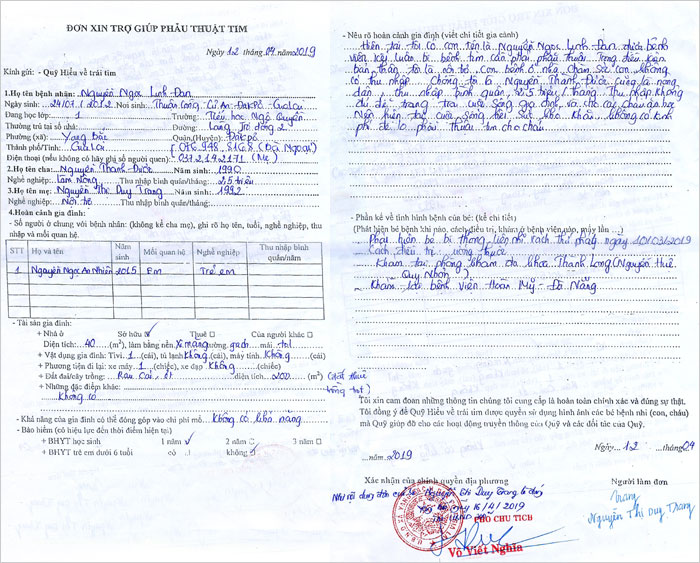 ĐƠN XIN TRỢ GIÚP PHẪU THUẬT TIM
Ngày 12 tháng 04 năm 2019
Kính gửi: - Quỹ Hiểu về trái tim
1.Họ tên bệnh nhân: Nguyễn Ngọc Linh Đan
Ngày sinh: 24/01/2012 Nơi sinh: - Đakpơ - Gia Lai
Đang học lớp: 1 Trường: Tiểu học Ngô Quyền
Thường trú tại số nhà: Đường:
Phường (xã): Yang Bắc Quận (Huyện): Đakpơ
Thành phố/Tỉnh: Gia Lai (Bà Ngoại)
Điện thoại (nếu không có hãy ghi số người quen): 0372.142171 (Mẹ)
2.Họ tên cha: Nguyễn Thanh Được Năm sinh: 1990
Nghề nghiệp: Làm Nông Thu nhập bình quân/tháng: 2,5 triệu
3.Họ tên mẹ: Nguyễn Thị Duy Trang Năm sinh: 1992
Nghề nghiệp: Nội trợ Thu nhập bình quân/tháng:
4.Hoàn cảnh gia đình:
- Số người ở chung với bệnh nhân: (không kể cha mẹ), ghi rõ họ tên, tuổi, nghề nghiệp, thu
nhập và mối quan hệ.
STT Họ và tên Năm sinh Mối quan hệ Nghề nghiệp Thu nhập bình quân/năm
1 Nguyễn Ngọc An Nhiên 2015 Em Trẻ em
- Tài sản gia đình:
+ Nhà ở Sở hữu ✓ Thuê □ Của người khác □
Diện tích: 40 (m²), làm bằng nền Xi măng tường gạch mái tol
+ Vật dụng gia đình: Tivi 1 (cái), tủ lạnh Không (cái), máy tính Không (cái)
+ Phương tiện đi lại: xe máy 1 (chiếc), xe đạp Không (chiếc)
+ Đất đai/cây trồng: Rau Cải, ớt diện tích 200 (m²) (đất thuê
trồng
+ Những đặc điểm khác:
Không có
- Khả năng của gia đình có thể đóng góp vào chi phí mổ: Không có khả năng
- Bảo hiểm (có hiệu lực đến thời điểm hiện tại)
+ BHYT học sinh 1 năm ✓ 2 năm □ 3 năm □
+ BHYT trẻ em dưới 6 tuổi có □ không ✓
- Nêu rõ hoàn cảnh gia đình (viết chi tiết gia cảnh)
Hiện tại tôi có con tên là Nguyễn Ngọc Linh Đan được bệnh
viện kết luận bị bệnh tim cần phải phẫu thuật. Trong điều kiện
bản thân tôi là nội trợ, con bệnh ở nhà chăm sóc con không
có thu nhập. Chồng tôi là Nguyễn Thanh Được cũng là nông
dân, thu nhập bình quân 2,5 triệu/tháng. Thu nhập không
đủ để trang trải cuộc sống gia đình và cho các cháu ăn học
Nên hiện tại cuộc sống hết sức khó khăn không có kinh
phí để lo phẫu thuật tim cho cháu.
- Phần kể về tình hình bệnh của bé: (kể chi tiết)
(Phát hiện bé bệnh khi nào, cách điều trị, khám ở bệnh viện nào, mấy lần ...)
Phát hiện bé bị thông liên nhĩ ngày 10/03/2019
Cách điều trị: uống thuốc
Khám tại phòng khám đa khoa Thành Long (Nguyễn Huệ
Quy Nhơn)
Khám tại bệnh viện Hoàn Mỹ - Đà Nẵng
Tôi xin cam đoan những thông tin chúng tôi cung cấp là hoàn toàn chính xác và đúng sự thật.
Tôi đồng ý để Quỹ Hiểu về trái tim được quyền sử dụng hình ảnh các bé bệnh nhi (con, cháu)
mà Quỹ giúp đỡ cho các hoạt động truyền thông của Quỹ và các đối tác của Quỹ.
Ngày 12 tháng 04
năm 2019
Xác nhận của chính quyền địa phương Người làm đơn
Nguyễn Thị Duy Trang là đúng
ngày 16/4/2019
PHÓ CHỦ TỊCH
Trang
Nguyễn Thị Duy Trang
Võ Viết Nghĩa